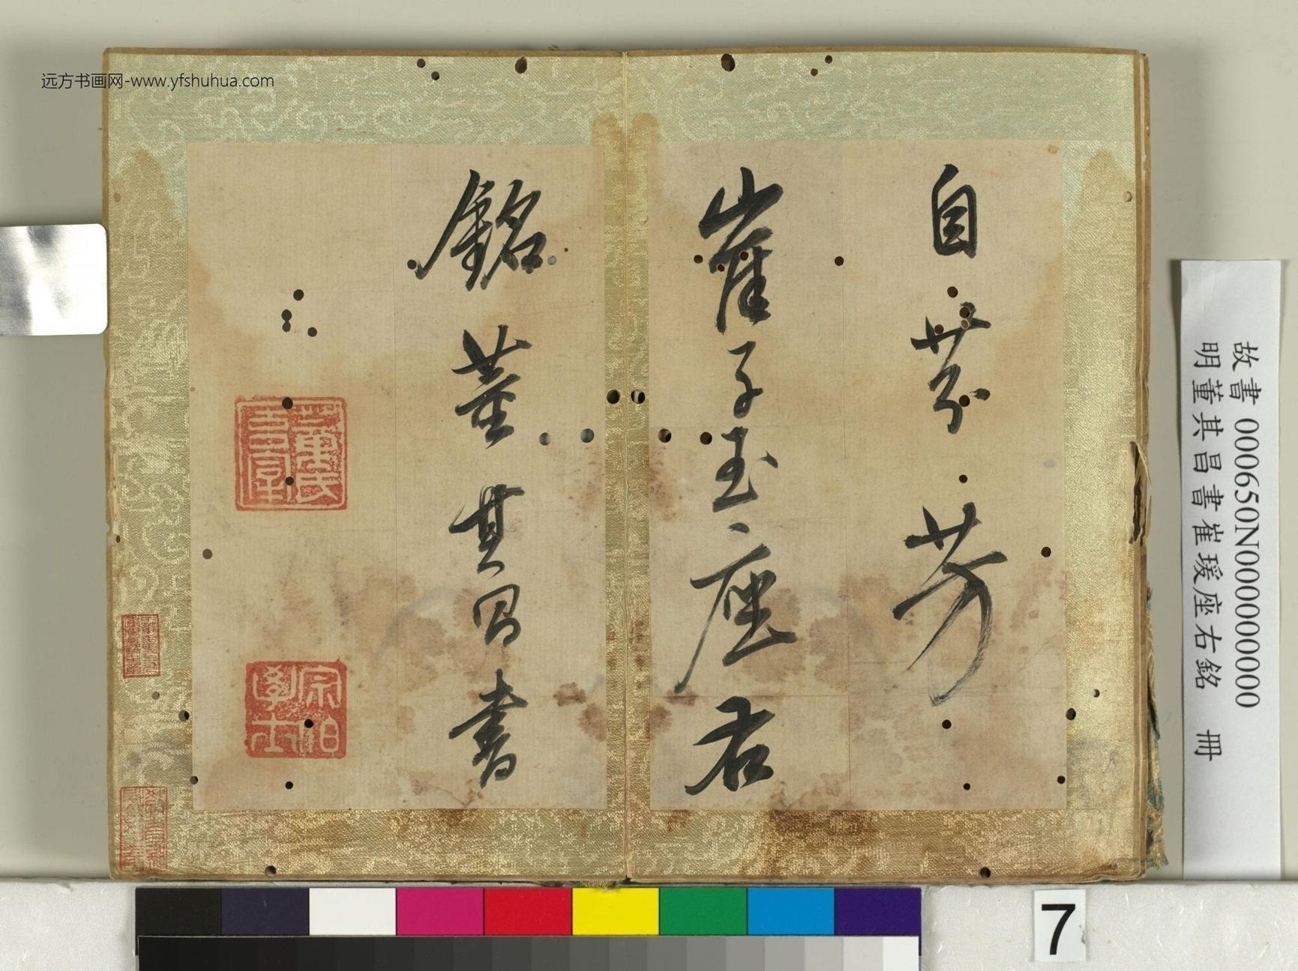 远方书画网-www.yfshuhua.com
自芬芳
崔子玉座右
銘董其昌書
董氏玄宰
宗伯學士
故書 000650N000000000
明董其昌書崔瑗座右銘 冊
7